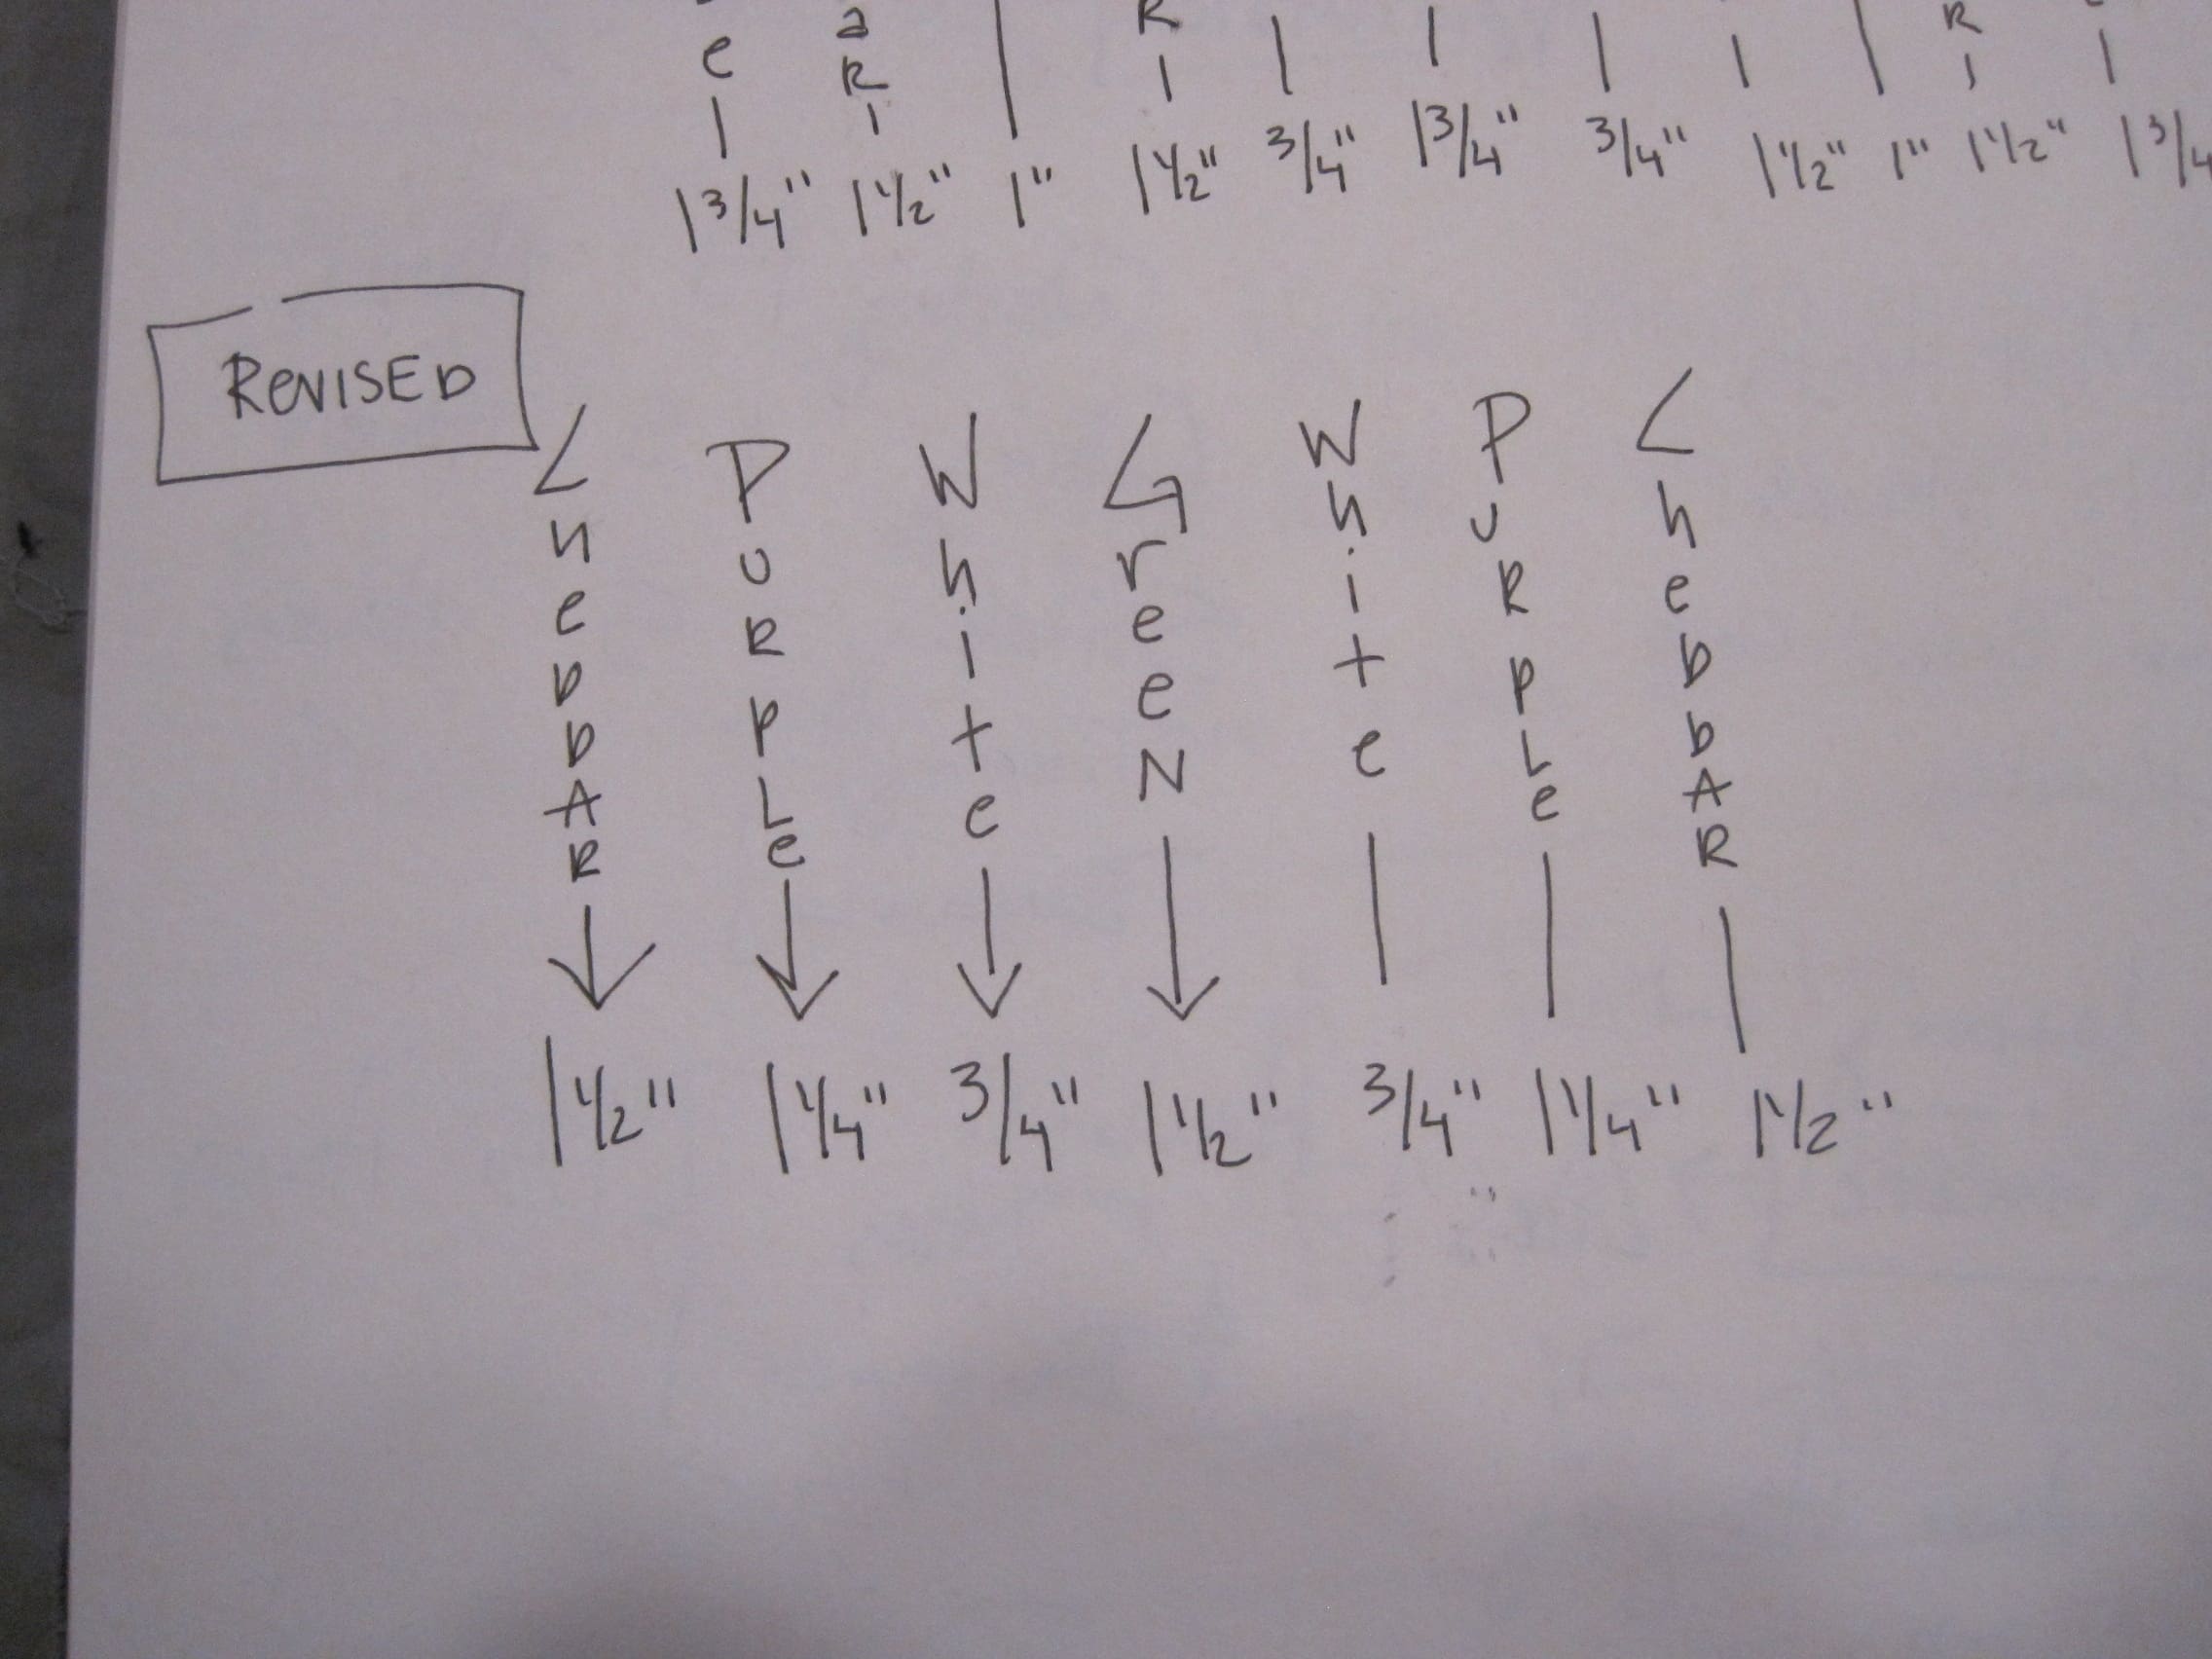 1 3/4" 1 1/2" 1" 1 1/2" 3/4" 1 3/4" 3/4" 1 1/2" 1" 1 1/2" 1 3/4
REVISED
CheDDAR PURPLe White GreeN White PURPLe CheDDAR
1 1/2" 1 1/4" 3/4" 1 1/2" 3/4" 1 1/4" 1 1/2"